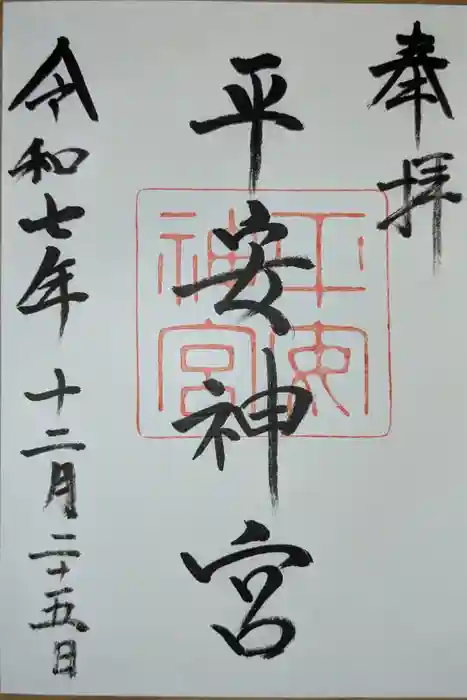 奉拝
平安神宮
平安神宮
令和七年 十二月 二十五日